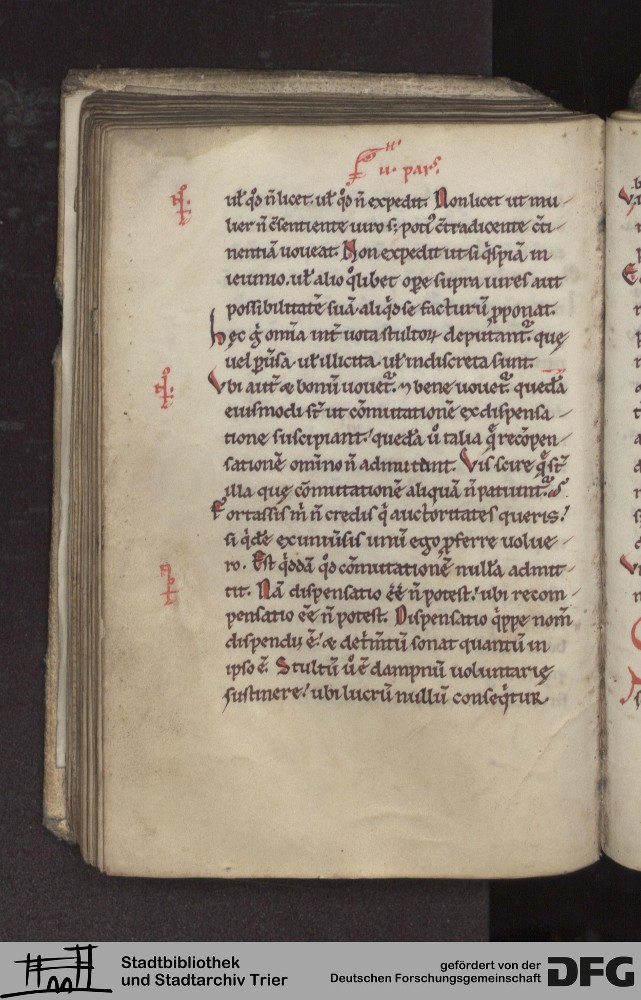 ii. pars
ul̄ q̊d n̄ licet. ul̄ q̊d n̄ expedit. Non licet ut mu
lier n̄ c̄sentiente uiro s; poti9 c̄tradicente c̄ti
nentiā uoueat. Non expedit ut si q̄spiā in
ieiunio. ul̄ alio q̄libet oꝑe supra uires aut
possibilitatē suā aliq̇d se facturū ꝓponat.
hęc g̊ omīa int̄ uota stultoꝝ deputant᷑. quę
uel ꝑu͛sa ul̄ illicita ul̄ indiscreta sunt.
Vbi aut̄ & bonū uouet᷑. ⁊ bene uouet᷑. quedā
eiusmodi st̄ ut cōmutationē ex dispensa
tione suscipiant. quedā u̇ talia q̨ recōpen
sationē omīno n̄ admittunt. Vis scire q̨ st̄
illa quę cōmutationē aliquā n̄ patiunt᷑.
Fortassis m̄ n̄ credis q̇ auctoritates queris.
si q̇dē ex uniu͛sis unū ego ꝓferre uolue
ro. Est q̇ddā q̊d cōmutationē nullā admit
tit. Nā dispensatio ēē n̄ potest. ubi recom
pensatio ēē n̄ potest. Dispensatio q̇ppe nom̄
dispendii ē. & det͛m̄tū sonat quantū in
ipso ē. Stultū u̇ ē dampnū uoluntarię
sustinere. ubi lucrū nullū conseq̇tur
Stadtbibliothek
und Stadtarchiv Trier
gefördert von der
Deutschen Forschungsgemeinschaft
DFG